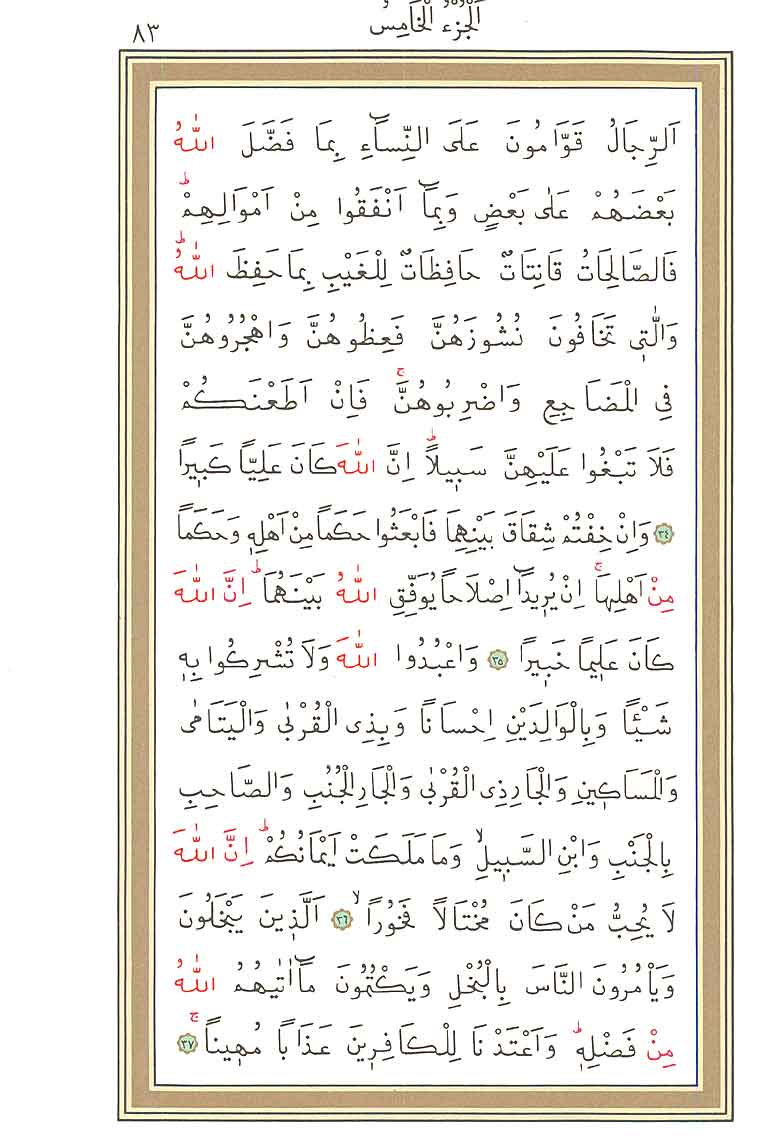 اَلْجُزْءُ الْخَامِسُ
٨٣
اَلرِّجَالُ قَوَّامُونَ عَلَى النِّسَٓاءِ بِمَا فَضَّلَ اللّٰهُ
بَعْضَهُمْ عَلٰى بَعْضٍ وَبِمَٓا اَنْفَقُوا مِنْ اَمْوَالِهِمْۜ
فَالصَّالِحَاتُ قَانِتَاتٌ حَافِظَاتٌ لِلْغَيْبِ بِمَا حَفِظَ اللّٰهُۜ
وَالّٰت۪ي تَخَافُونَ نُشُوزَهُنَّ فَعِظُوهُنَّ وَاهْجُرُوهُنَّ
فِي الْمَضَاجِعِ وَاضْرِبُوهُنَّۚ فَاِنْ اَطَعْنَكُمْ
فَلَا تَبْغُوا عَلَيْهِنَّ سَب۪يلًاۜ اِنَّ اللّٰهَ كَانَ عَلِيًّا كَب۪يرًا
٣٤ وَاِنْ خِفْتُمْ شِقَاقَ بَيْنِهِمَا فَابْعَثُوا حَكَمًا مِنْ اَهْلِه۪ وَحَكَمًا
مِنْ اَهْلِهَاۚ اِنْ يُر۪يدَٓا اِصْلَاحًا يُوَفِّقِ اللّٰهُ بَيْنَهُمَاۜ اِنَّ اللّٰهَ
كَانَ عَل۪يمًا خَب۪يرًا ٣٥ وَاعْبُدُوا اللّٰهَ وَلَا تُشْرِكُوا بِه۪
شَيْـًٔا وَبِالْوَالِدَيْنِ اِحْسَانًا وَبِذِي الْقُرْبٰى وَالْيَتَامٰى
وَالْمَسَاك۪ينِ وَالْجَارِ ذِي الْقُرْبٰى وَالْجَارِ الْجُنُبِ وَالصَّاحِبِ
بِالْجَنْبِ وَابْنِ السَّب۪يلِۙ وَمَا مَلَكَتْ اَيْمَانُكُمْۜ اِنَّ اللّٰهَ
لَا يُحِبُّ مَنْ كَانَ مُخْتَالًا فَخُورًاۙ ٣٦ اَلَّذ۪ينَ يَبْخَلُونَ
وَيَأْمُرُونَ النَّاسَ بِالْبُخْلِ وَيَكْتُمُونَ مَٓا اٰتٰيهُمُ اللّٰهُ
مِنْ فَضْلِه۪ۜ وَاَعْتَدْنَا لِلْكَافِر۪ينَ عَذَابًا مُه۪ينًاۚ ٣٧